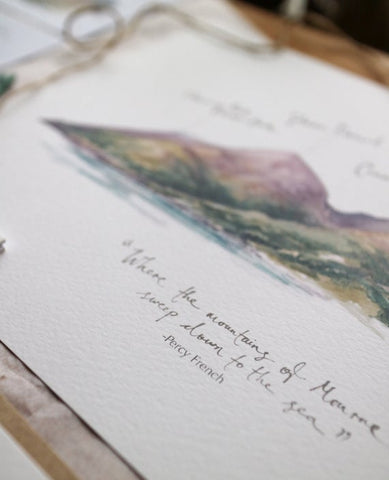 "Where the mountains of Mourne
sweep down to the sea"
-Percy French